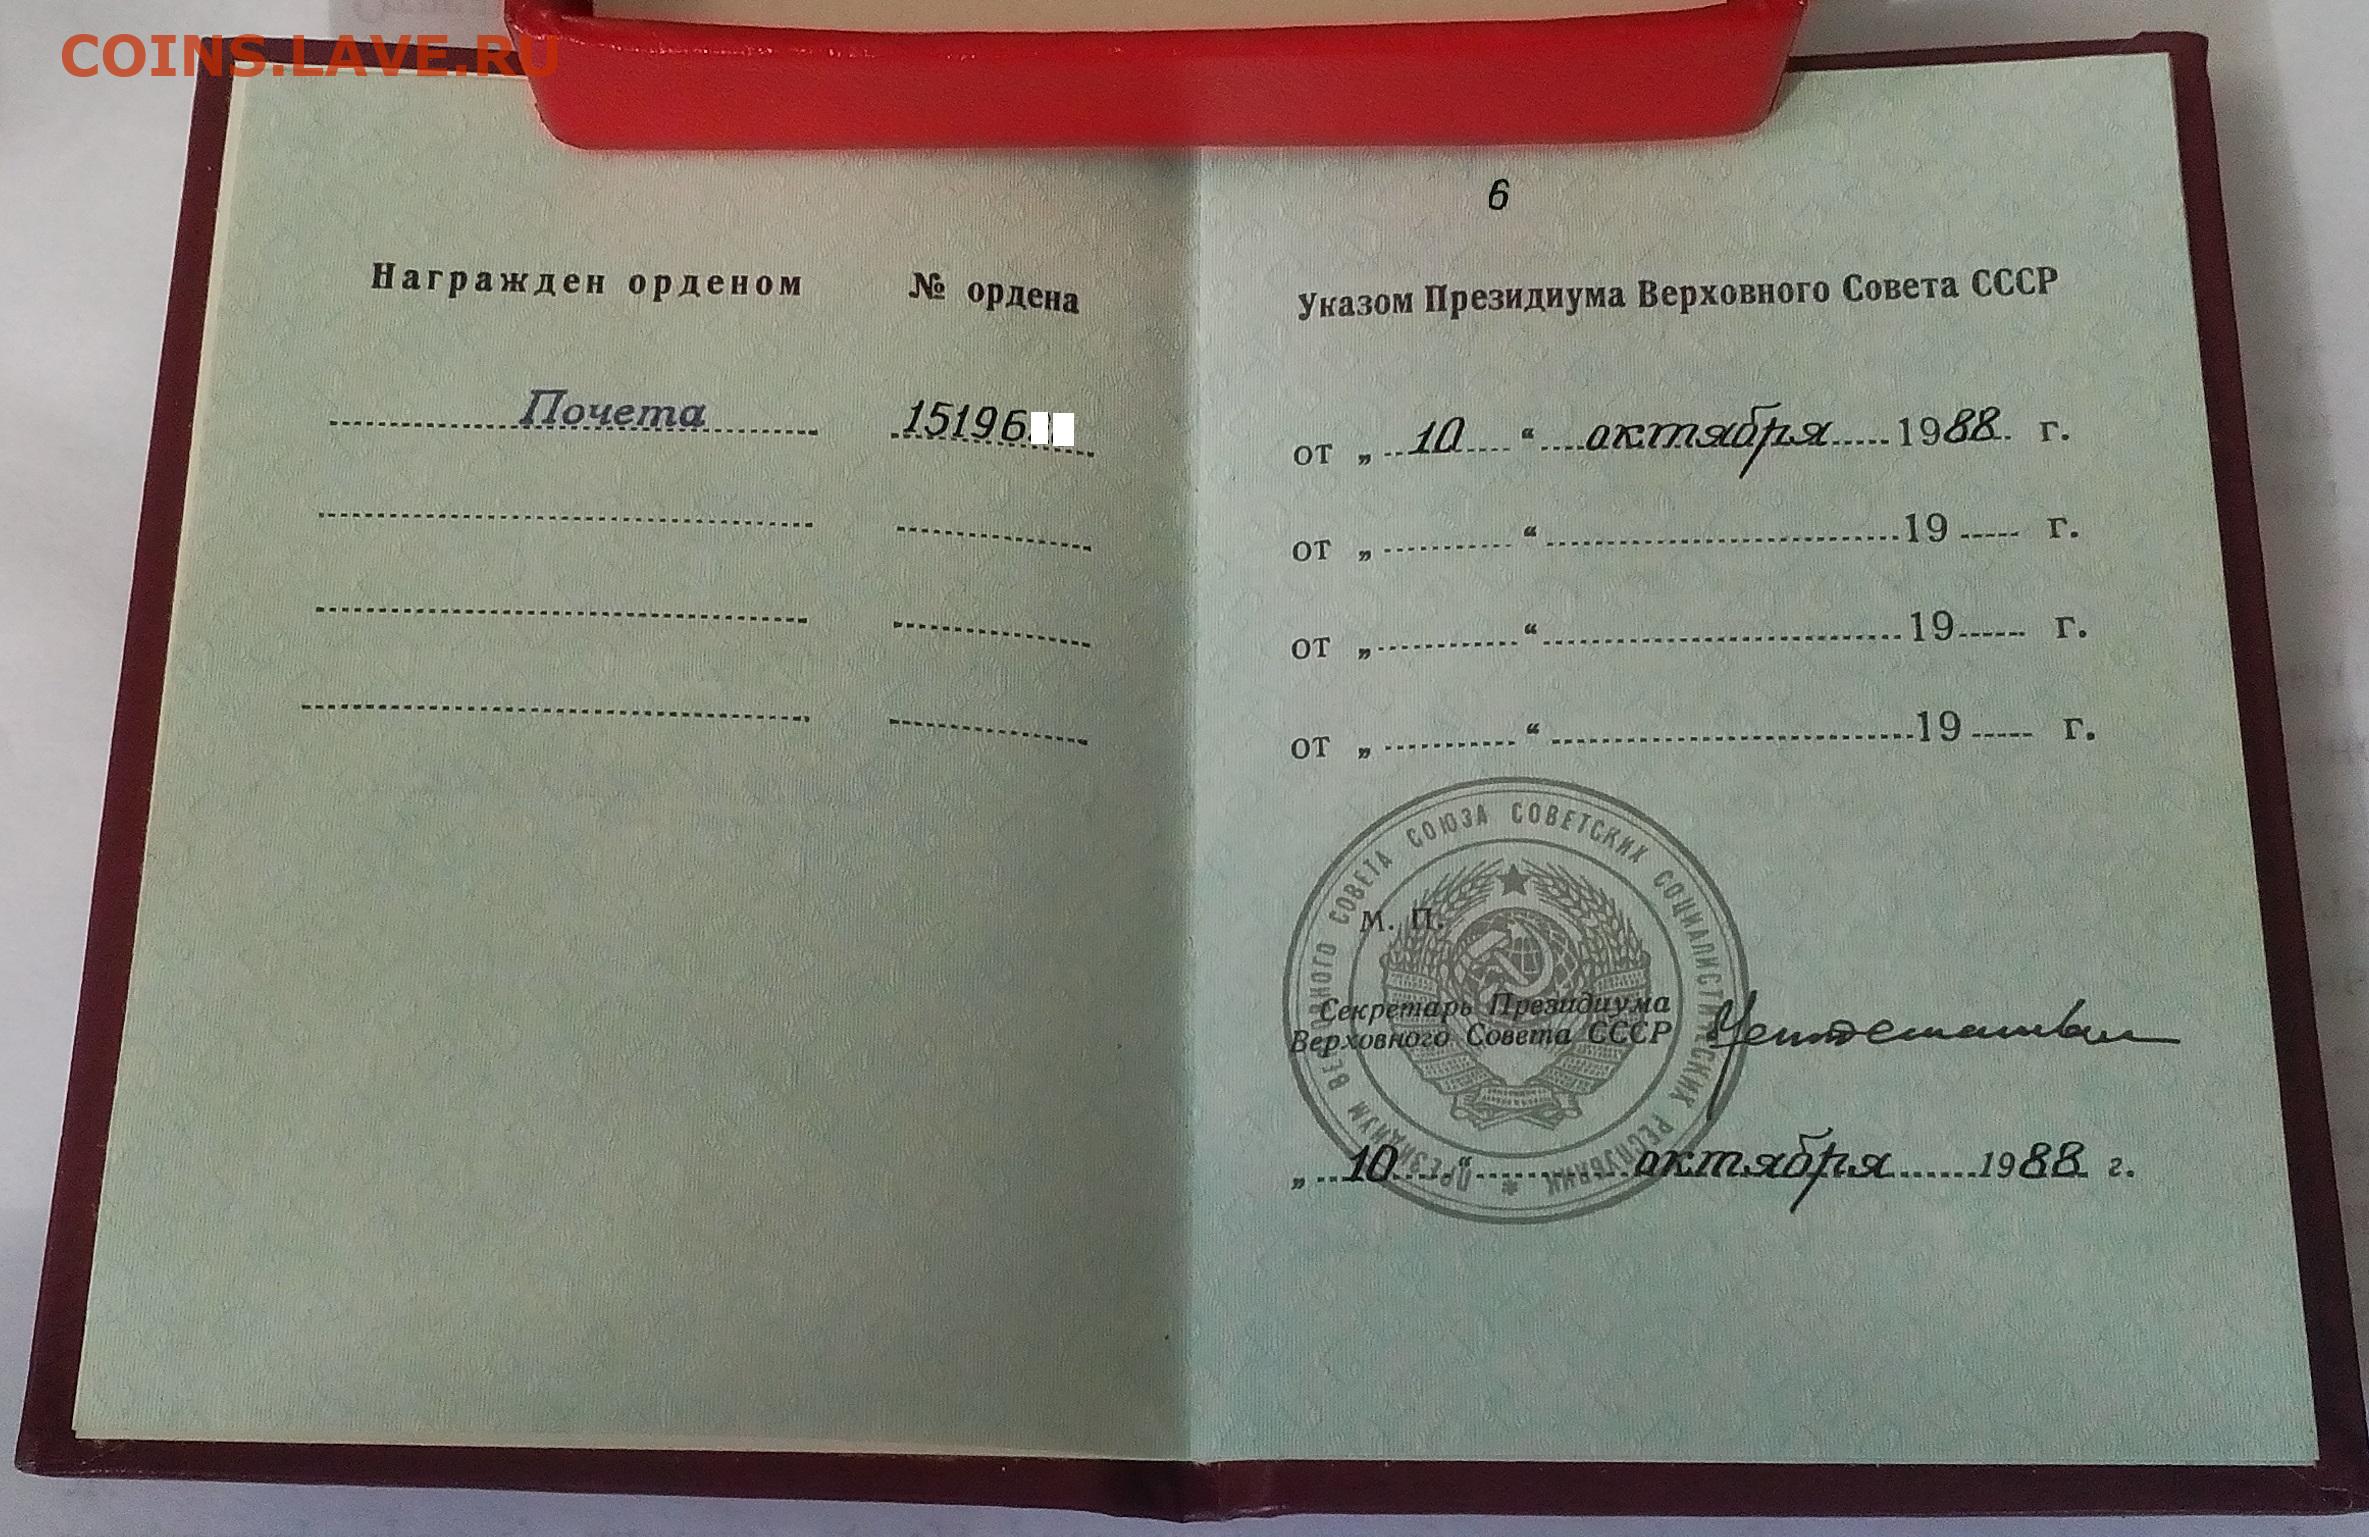 COINS.LAVE.RU
6
Награжден орденом № ордена
Почета 15196
Указом Президиума Верховного Совета СССР
от „ 10 “ октября 1988 г.
от „ “ 19 г.
от „ “ 19 г.
от „ “ 19 г.
ПРЕЗИДИУМ ВЕРХОВНОГО СОВЕТА СОЮЗА СОВЕТСКИХ СОЦИАЛИСТИЧЕСКИХ РЕСПУБЛИК *
М. П.
Секретарь Президиума
Верховного Совета СССР
„ 10 “ октября 1988 г.